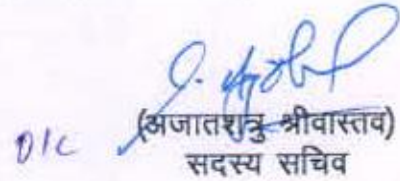 O/C (अजातशत्रु श्रीवास्तव)
सदस्य सचिव